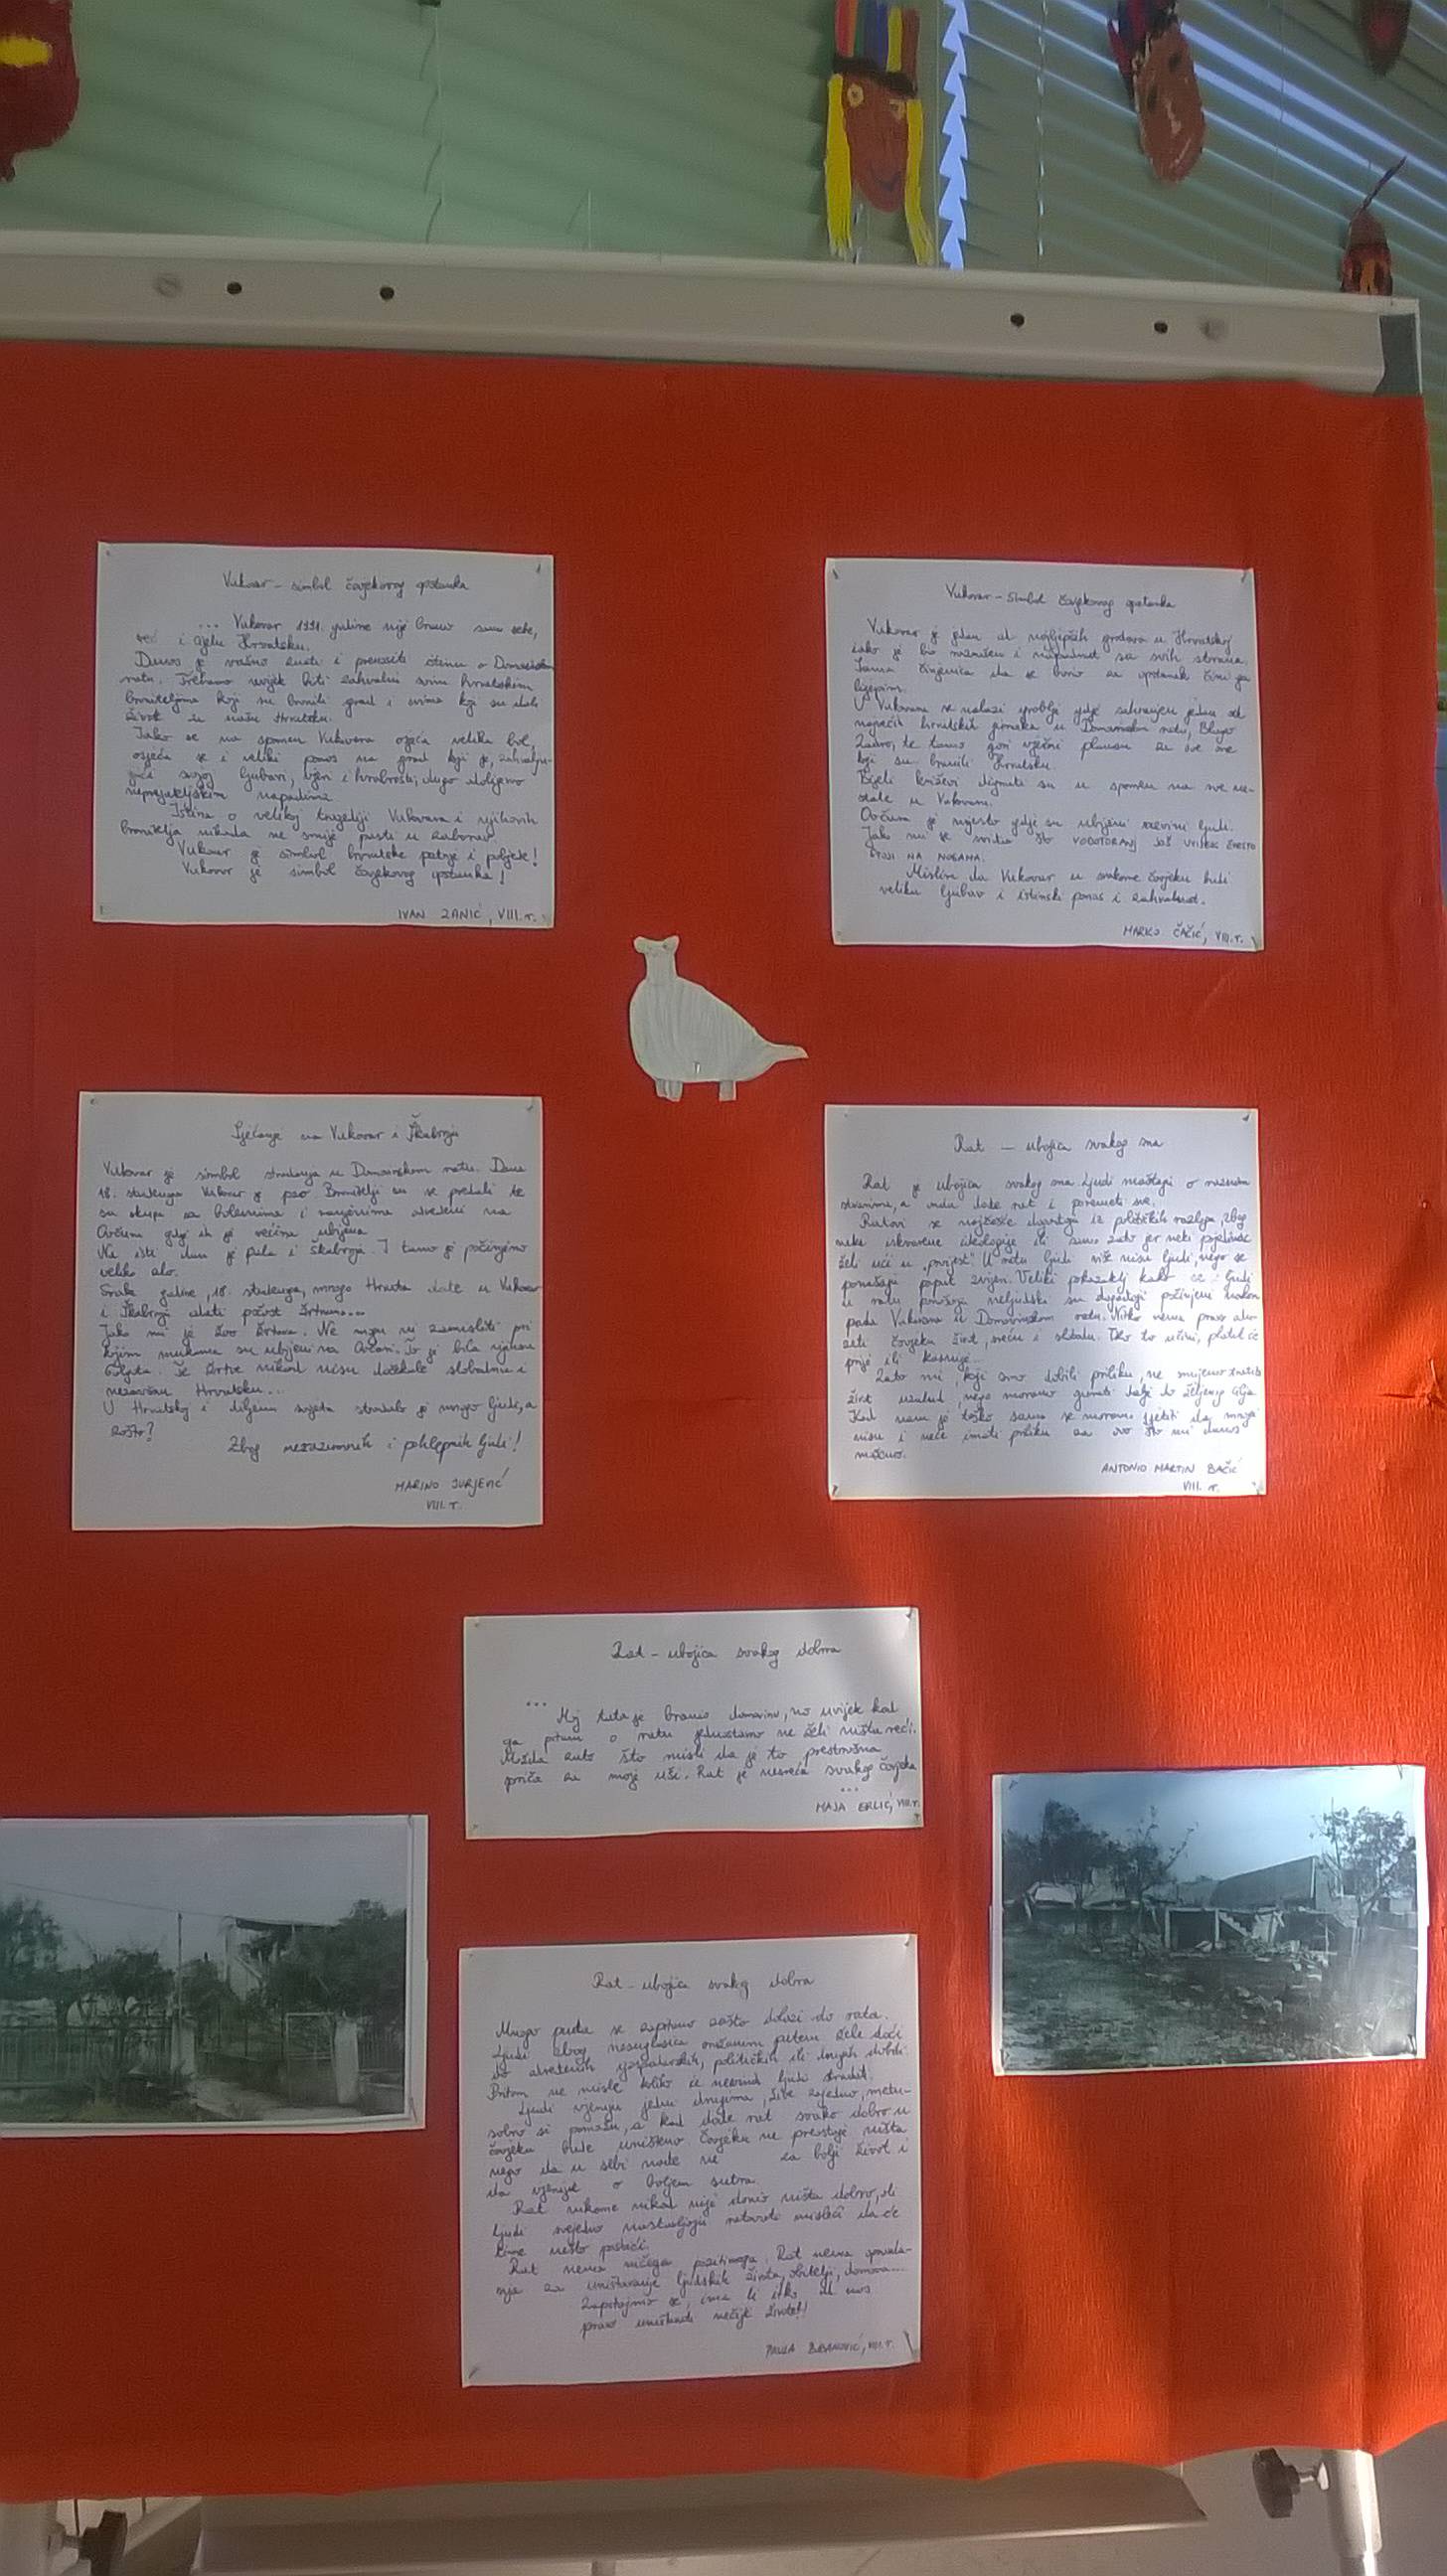 Vukovar - simbol čovjekovog opstanka
... Vukovar 1991. godine nije branio samo sebe,
već i cijelu Hrvatsku.
Danas je važno znati i prenositi istinu o Domovinskom
ratu. Trebamo uvijek biti zahvalni svim hrvatskim
braniteljima koji su branili grad i svima koji su dali
život za našu Hrvatsku.
Iako se na spomen Vukovara osjeća velika bol,
osjeća se i veliki ponos na grad koji je, zahvalju-
jući svojoj ljubavi, vjeri i hrabrosti, dugo odolijevao
neprijateljskim napadima.
Istina o velikoj tragediji Vukovara i njihovih
branitelja nikada ne smije pasti u zaborav.
Vukovar je simbol hrvatske patnje i pobjede!
Vukovar je simbol čovjekovog opstanka!
IVAN ZANIĆ, VIII.r.
Vukovar - simbol čovjekovog opstanka
Vukovar je jedan od najljepših gradova u Hrvatskoj
iako je bio razrušen i napadnut sa svih strana.
Sama činjenica da se borio za opstanak čini ga
lijepim.
U Vukovaru se nalazi groblje gdje sahranjen jedan od
najvećih hrvatskih junaka u Domovinskom ratu, Blago
Zadro, te tamo gori vječni plamen za sve one
koji su branili Hrvatsku.
Bijeli križevi dignuti su u spomen na sve ne-
stale u Vukovaru.
Ovčara je mjesto gdje su ubijeni nevini ljudi.
Jako mi se sviđa što VODOTORANJ JOŠ UVIJEK ČVRSTO
STOJI NA NOGAMA.
Mislim da Vukovar u svakome čovjeku budi
veliku ljubav i istinski ponos i zahvalnost.
MARKO ČAČIĆ, VIII.r.
Sjećanje na Vukovar i Škabrnju
Vukovar je simbol stradanja u Domovinskom ratu. Dana
18. studenoga Vukovar je pao. Branitelji su se predali te
su skupa sa bolesnima i ranjenima odvedeni na
Ovčaru gdje ih je većina ubijena.
Na isti dan je pala i Škabrnja. I tamo je počinjeno
veliko zlo.
Svake godine, 18. studenoga, mnogo Hrvata dođe u Vukovar
i Škabrnju odati počast žrtvama...
Jako mi je žao žrtava. Ne mogu ni zamisliti pri
kojim mukama su ubijeni na Ovčari. To je bila njihova
Golgota. Te žrtve nikad nisu dočekale slobodnu i
nezavisnu Hrvatsku...
U Hrvatskoj i diljem svijeta stradalo je mnogo ljudi, a
zašto?
Zbog nerazumnih i pohlepnih ljudi!
MARINO JURJEVIĆ
VIII. r.
Rat - ubojica svakog sna
Rat je ubojica svakog sna. Ljudi maštaju o raznim
stvarima, a onda dođe rat i poremeti sve.
Ratovi se najčešće događaju iz političkih razloga, zbog
neke iskvarene ideologije ili samo zato jer neki pojedinac
želi ući u "povijest". U ratu ljudi više nisu ljudi, nego se
ponašaju poput zvijeri. Veliki pokazatelj kako se ljudi
u ratu ponašaju neljudski su događaji počinjeni nakon
pada Vukovara u Domovinskom ratu. Nitko nema pravo odu-
zeti čovjeku život, sreću i slobodu. Tko to učini, platit će
prije ili kasnije...
Zato mi, koji smo dobili priliku, ne smijemo tratiti
život uzalud, nego moramo gurati dalje do željenog cilja.
Kad nam je teško samo se moramo sjetiti da mnogi
nisu i neće imati priliku za ovo što mi danas
možemo.
ANTONIO MARTIN BAČIĆ
VIII. r.
Rat - ubojica svakog dobra
... Moj tata je branio domovinu, no uvijek kad
ga pitam o ratu jednostavno ne želi ništa reći.
Možda zato što misli da je to prestrašna
priča za moje uši. Rat je nesreća svakog čovjeka
...
MAJA ERLIĆ, VIII.r.
Rat - ubojica svakog dobra
Mnogo puta se zapitamo zašto dolazi do rata.
Ljudi zbog nesuglasica oružanim putem žele doći
do određenih gospodarskih, političkih ili drugih dobiti.
Pritom ne misle koliko će nevinih ljudi stradati.
Ljudi vjeruju jedni drugima, žive zajedno, među-
sobno si pomažu, a kad dođe rat svako dobro u
čovjeku bude uništeno. Čovjeku ne preostaje ništa
nego da u sebi nađe za bolji život i
da vjeruje o boljem sutra.
Rat nikome nikad nije donio ništa dobro, ali
ljudi svejedno nastavljaju ratovati misleći da će
time nešto postići.
Rat nema ničega pozitivnoga. Rat nema oprav-
nja za uništavanje ljudskih života, obitelji, domova...
Zapitajmo se, ima li itko od nas
pravo uništavati nečije živote!
PAULA, VIII.r.